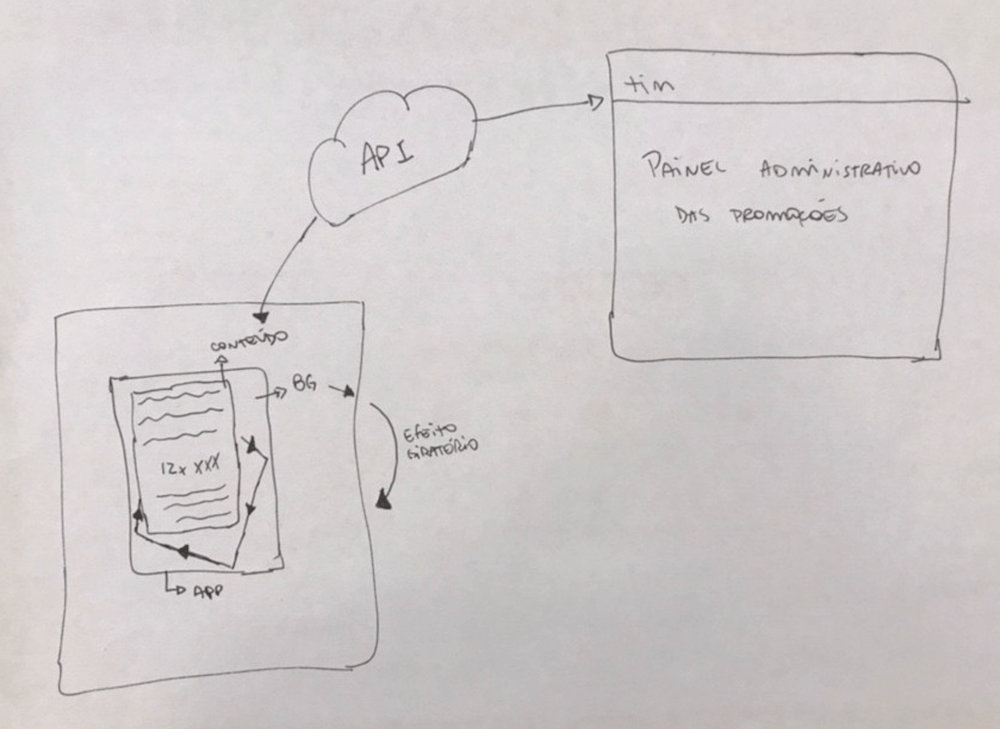 tim
PAINEL ADMINISTRATIVO
DAS PROMOÇÕES
API
CONTEÚDO
BG
EFEITO
GIRATÓRIO
12x XXX
APP